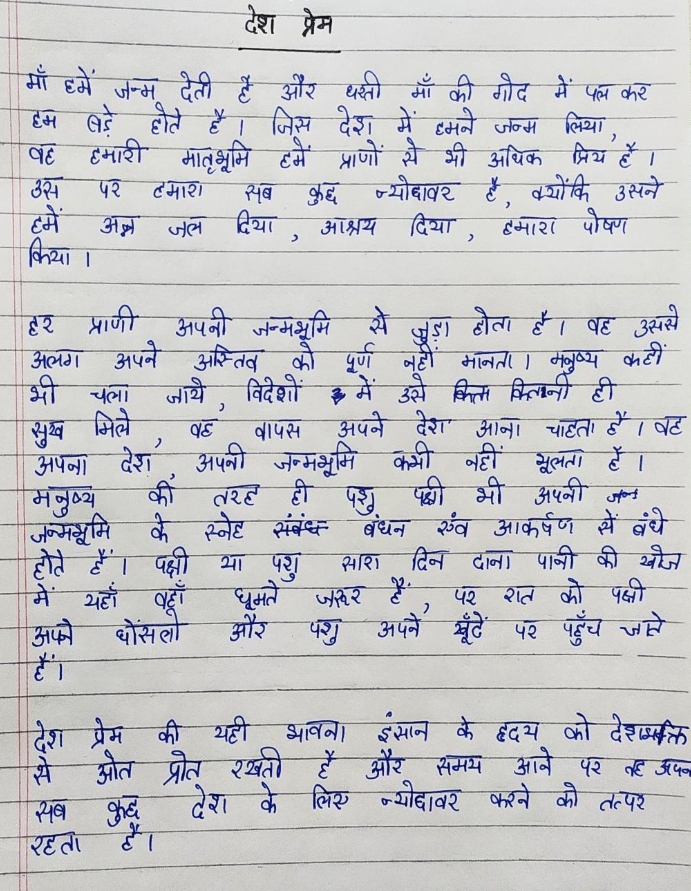 देश प्रेम
माँ हमें जन्म देती है और धरती माँ की गोद में पल कर
हम बड़े होते है। जिस देश में हमने जन्म लिया,
वह हमारी मातृभूमि हमें प्राणों से भी अधिक प्रिय है।
उस पर हमारा सब कुछ न्योछावर है, क्योंकि उसने
हमें अन्न जल दिया, आश्रय दिया, हमारा पोषण
किया।
हर प्राणी अपनी जन्मभूमि से जुड़ा होता है। वह उससे
अलग अपने अस्तित्व को पूर्ण नहीं मानता। मनुष्य कहीं
भी चला जाये, विदेशों में उसे कितनी ही
सुख मिले, वह वापस अपने देश आना चाहता है। वह
अपना देश, अपनी जन्मभूमि कभी नहीं भूलता है।
मनुष्य की तरह ही पशु पक्षी भी अपनी जन्म
जन्मभूमि के स्नेह संबंध बंधन एंव आकर्षण से बंधे
होते हैं। पक्षी या पशु सारा दिन दाना पानी की खोज
में यहाँ वहाँ घूमते जरूर हैं, पर रात को पक्षी
अपने घोंसलो और पशु अपने खूँटें पर पहुँच जाते
हैं।
देश प्रेम की यही भावना इंसान के हृदय को देशभक्ति
से ओत प्रोत रखती है और समय आने पर वह अपना
सब कुछ देश के लिए न्योछावर करने को तत्पर
रहता है।